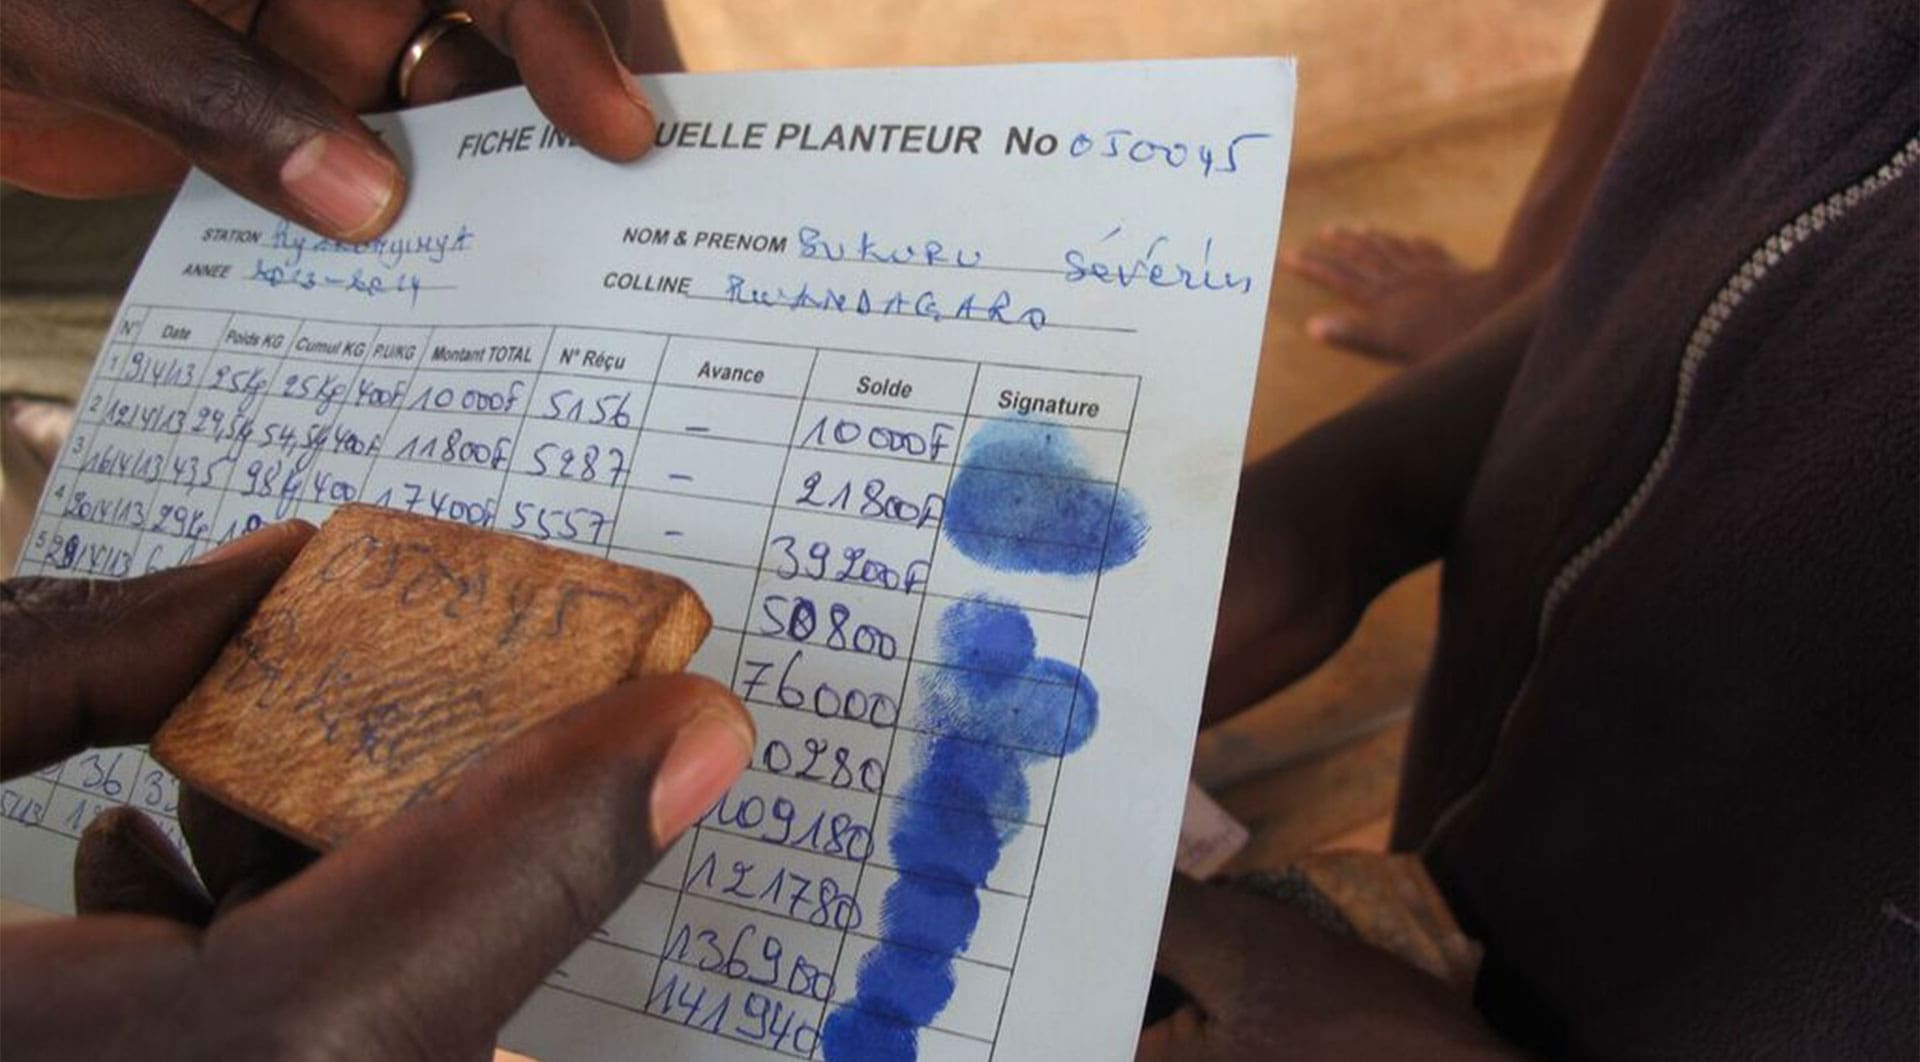 FICHE IN UELLE PLANTEUR No 050045
STATION
NOM & PRENOM BUKURU Sévérin
ANNEE 2013-2014
COLLINE RWANDAGARO
N° Date Poids KG Cumul KG P.U/KG Montant TOTAL N° Réçu Avance Solde Signature
1 9/4/13 25Kg 25Kg 400F 10 000F 5156 — 10 000F
2 12/4/13 29,5Kg 54,5Kg 400F 11800F 5287 — 21800F
3 16/4/13 43,5 98Kg 400 17400F 5557 — 39200F
4 20/4/13 29Kg 50800
5 29/4/13 6 76000
0280
109180
36 121780
136900
141940
050045